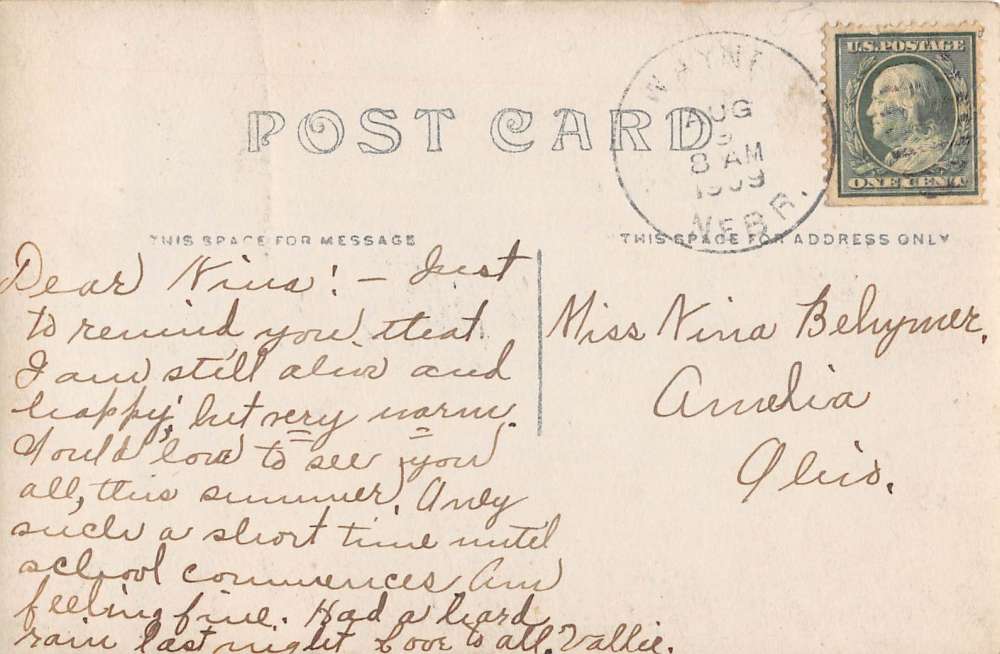 POST CARD
WAYNE
AUG
9
8 AM
1909
NEBR.
U.S. POSTAGE
ONE CENT
THIS SPACE FOR MESSAGE
THIS SPACE FOR ADDRESS ONLY
Dear Nina! - Just
to remind you that
I am still alive and
happy, but very warm.
Would love to see you
all, this summer. Only
such a short time until
school commences. Am
feeling fine. Had a hard
rain last night. Love to all. Vallie.
Miss Nina Behymer,
Amelia
Ohio.